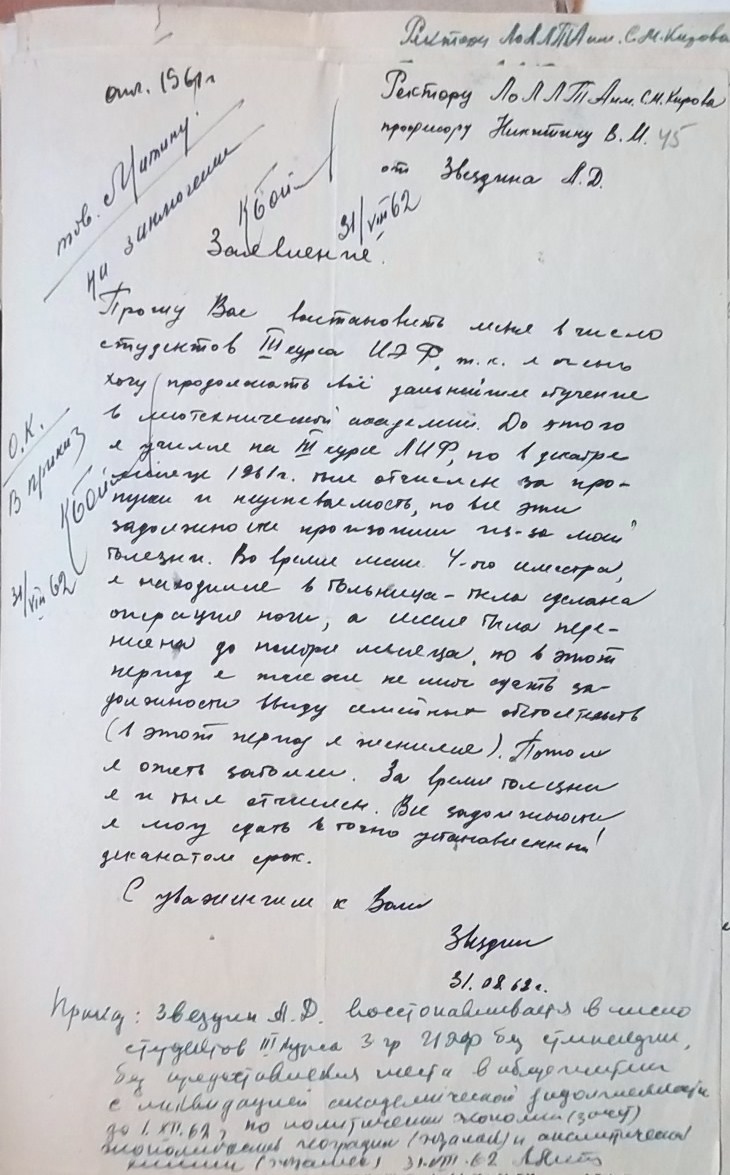 Ректору ЛоЛЛТА им. С.М. Кирова
отч. 1961г
Ректору ЛоЛЛТА им. С.М. Кирова
профессору Никитину В.М. 45
от Звездина А.Д.
тов. Митину.
на заключение
31/VIII 62
Заявление.
Прошу Вас востановить меня в число
студентов III курса ИЭФ, т.к. я очень
хочу продолжать всё дальнейшее обучение
в лесотехнической академии. До этого
я учился на III курсе ЛИФ, но в декабре
месяце 1961г. был отчислен за про-
пуски и неуспеваемость, но все эти
задолжности произошли из-за моей
болезни. Во время 4-го семестра,
я находился в больнице - была сделана
операция ноги, а сессия была пере-
несена до ноября месяца, но в этот
период я также не мог сдать за-
должности ввиду семейных обстоятельств
(в этот период я женился). Потом
я опять заболел. За время болезни
я и был отчислен. Все задолжности
я могу сдать в точно установленный
деканатом срок.
С уважением к Вам
Звездин
31.08.62г.
О.К.
В приказ
31/VIII 62
Приказ: Звездин А.Д. восстанавливается в число
студентов III курса 3 гр ИЭФ без стипендии,
без предоставления места в общежитии
с ликвидацией академической задолженности
до 1.XII.62г по политической экономии (зачет)
экономической географии (экзамен) и аналитической
химии (экзамен) 31.VIII.62